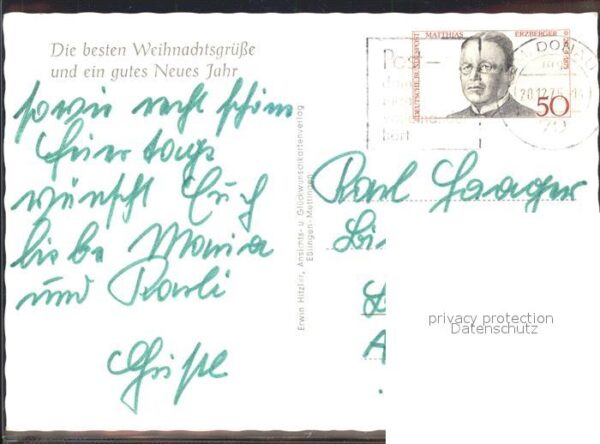 Die besten Weihnachtsgrüße
und ein gutes Neues Jahr
sowie recht schöne
Feiertage
wünscht Euch
liebe Maria
und Karli
Erwin Hitzler, Ansichts- u. Glückwunschkartenverlag
Eßlingen-Mettingen
DEUTSCHE BUNDESPOST
MATTHIAS ERZBERGER
50
Post-
DONAU
20.12.76
Karl
privacy protection
Datenschutz